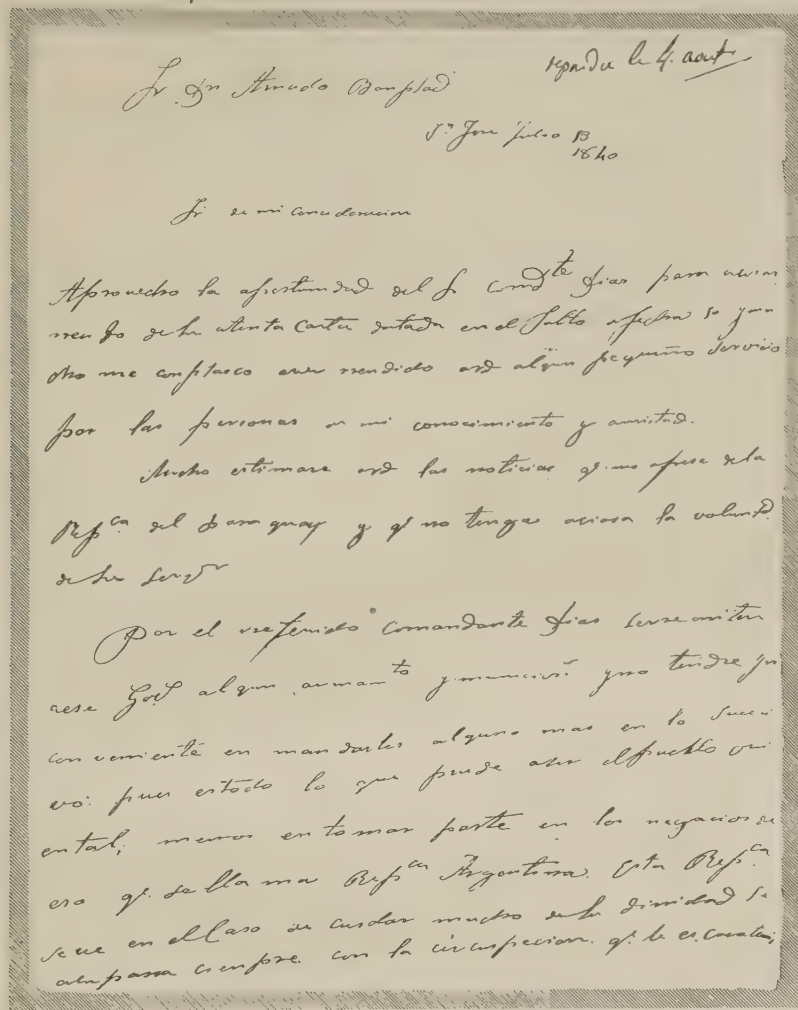 repondu le 4. aout
Sr Dn Amado Bonpland
Sn Jose Julio 13
1840
Sr de mi concideracion
Aprovecho la oportunidad del Sr Comdte Dias para
de su atenta Carta datada en el Salto
me conplasco aver rendido ard algun pequeño servicio
por las personas de mi conocimiento y amistad.
Mucho estimare ard las noticias qe. me ofrese de la
Repca del paraguay y qe no tenga ociosa la voluntd
de su servor
Por el referido comandante Dias
aese Govo algun armamto y municions y no tendre
conveniente en mandarles alguno mas en lo suceci
vo: pues estodo lo que puede aser el pueblo ori
ental; menos en tomar parte en los negocios de
eso qe. se llama Repca Argentina. Esta Repca
se ve en el Caso de cuidar mucho de su dinidad
ciempre con la circuspecion qe. le es